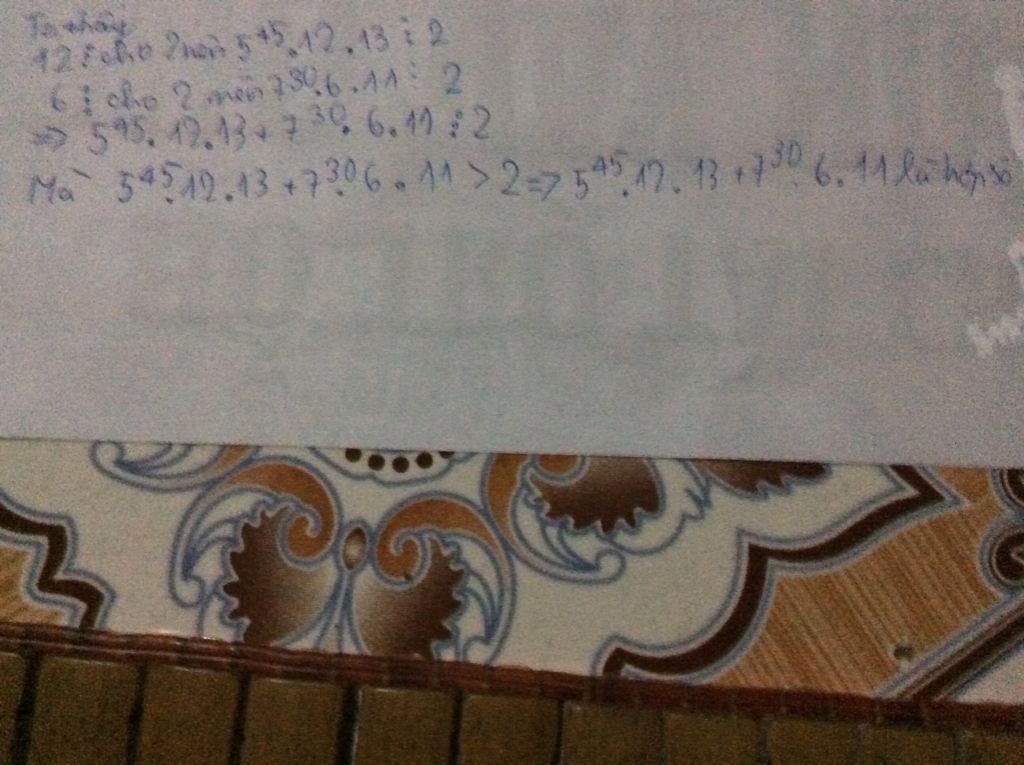 Ta thấy
12 ⋮ cho 2 nên 5⁴⁵.12.13 ⋮ 2
6 ⋮ cho 2 nên 7³⁰.6.11 ⋮ 2
=> 5⁴⁵.12.13 + 7³⁰.6.11 ⋮ 2
Mà 5⁴⁵.12.13 + 7³⁰.6.11 > 2 => 5⁴⁵.12.13 + 7³⁰.6.11 là hợp số